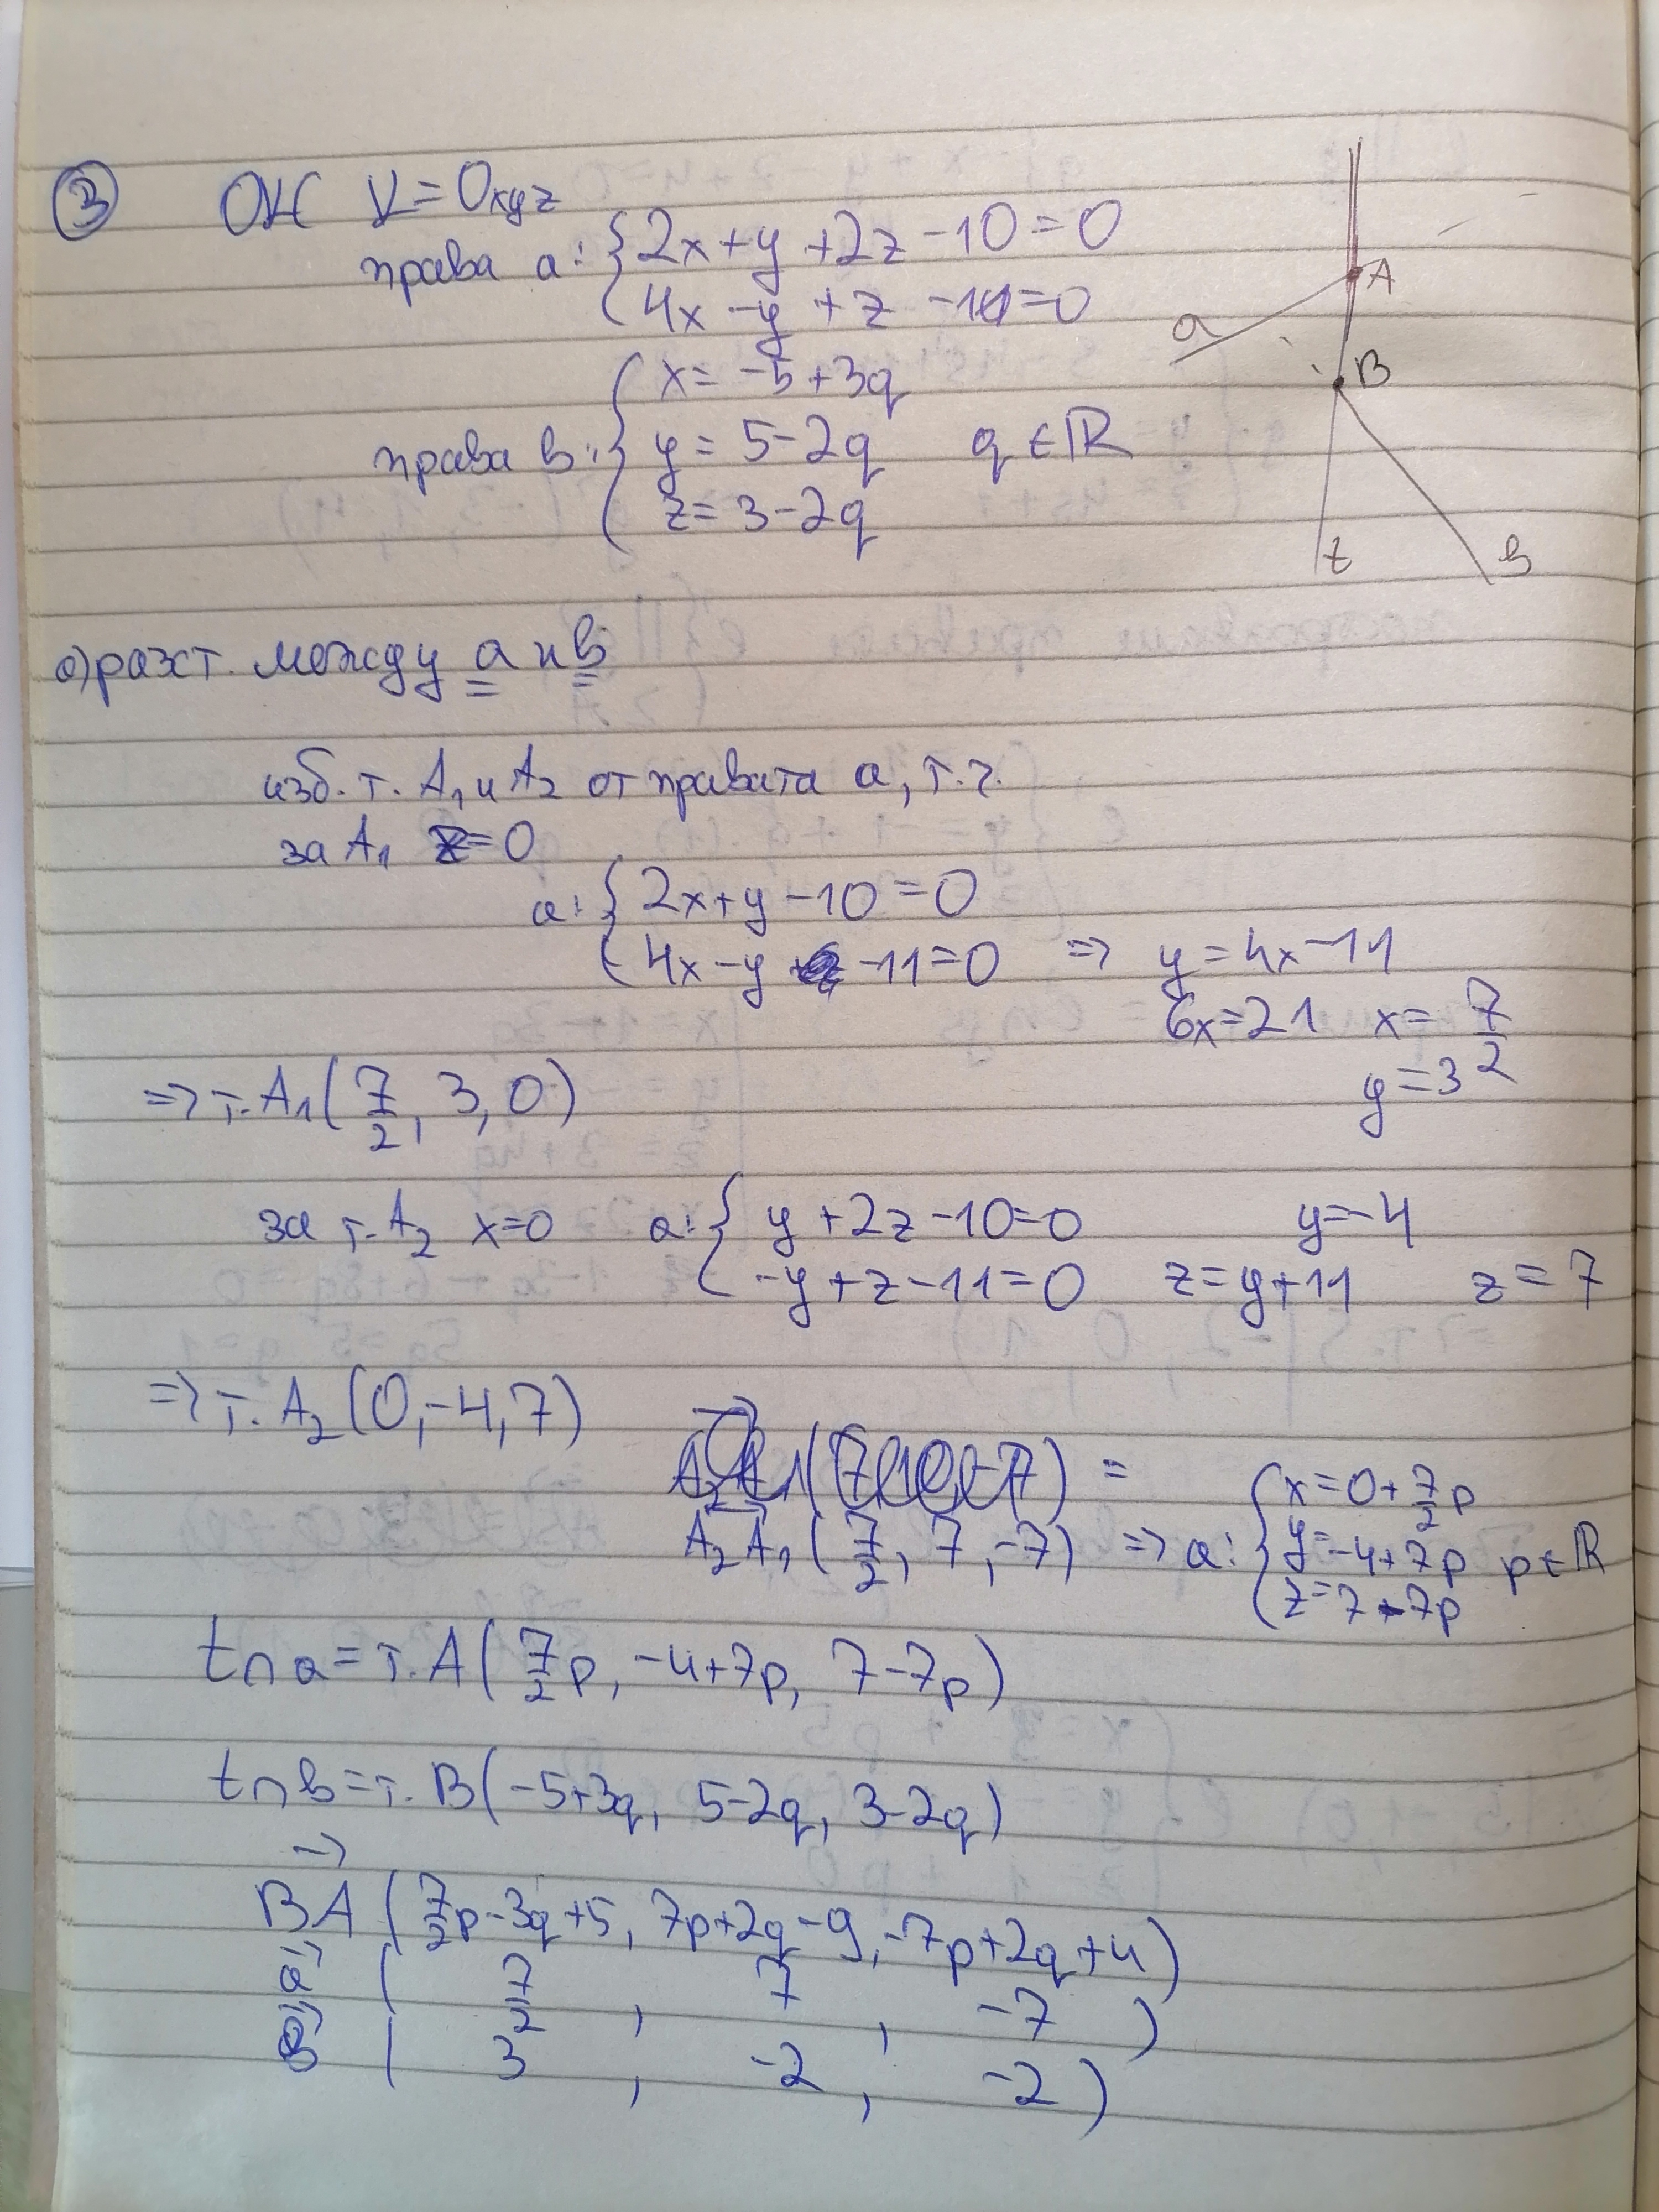 ③ ОКС K=Oxyz
права a: { 2x+y+2z-10=0
4x-y+z-11=0
права b: { x=-5+3q
y=5-2q q∈ℝ
z=3-2q
a A B t b
a) разст. между a и b
изб. т. A₁ и A₂ от правата a, т.ч.
за A₁ z=0
a: { 2x+y-10=0
4x-y-11=0 => y=4x-11
6x=21 x=7/2
y=3
=> т. A₁(7/2, 3, 0)
за т. A₂ x=0 a: { y+2z-10=0 y=-4
-y+z-11=0 z=y+11 z=7
=> т. A₂(0,-4,7)
A₂A₁(7/2, 7, -7) => a: { x=0+7/2p
y=-4+7p p∈ℝ
z=7-7p
t∩a=т. A(7/2p, -4+7p, 7-7p)
t∩b=т. B(-5+3q, 5-2q, 3-2q)
BA(7/2p-3q+5, 7p+2q-9, -7p+2q+4)
a(7/2, 7, -7)
b(3, -2, -2)